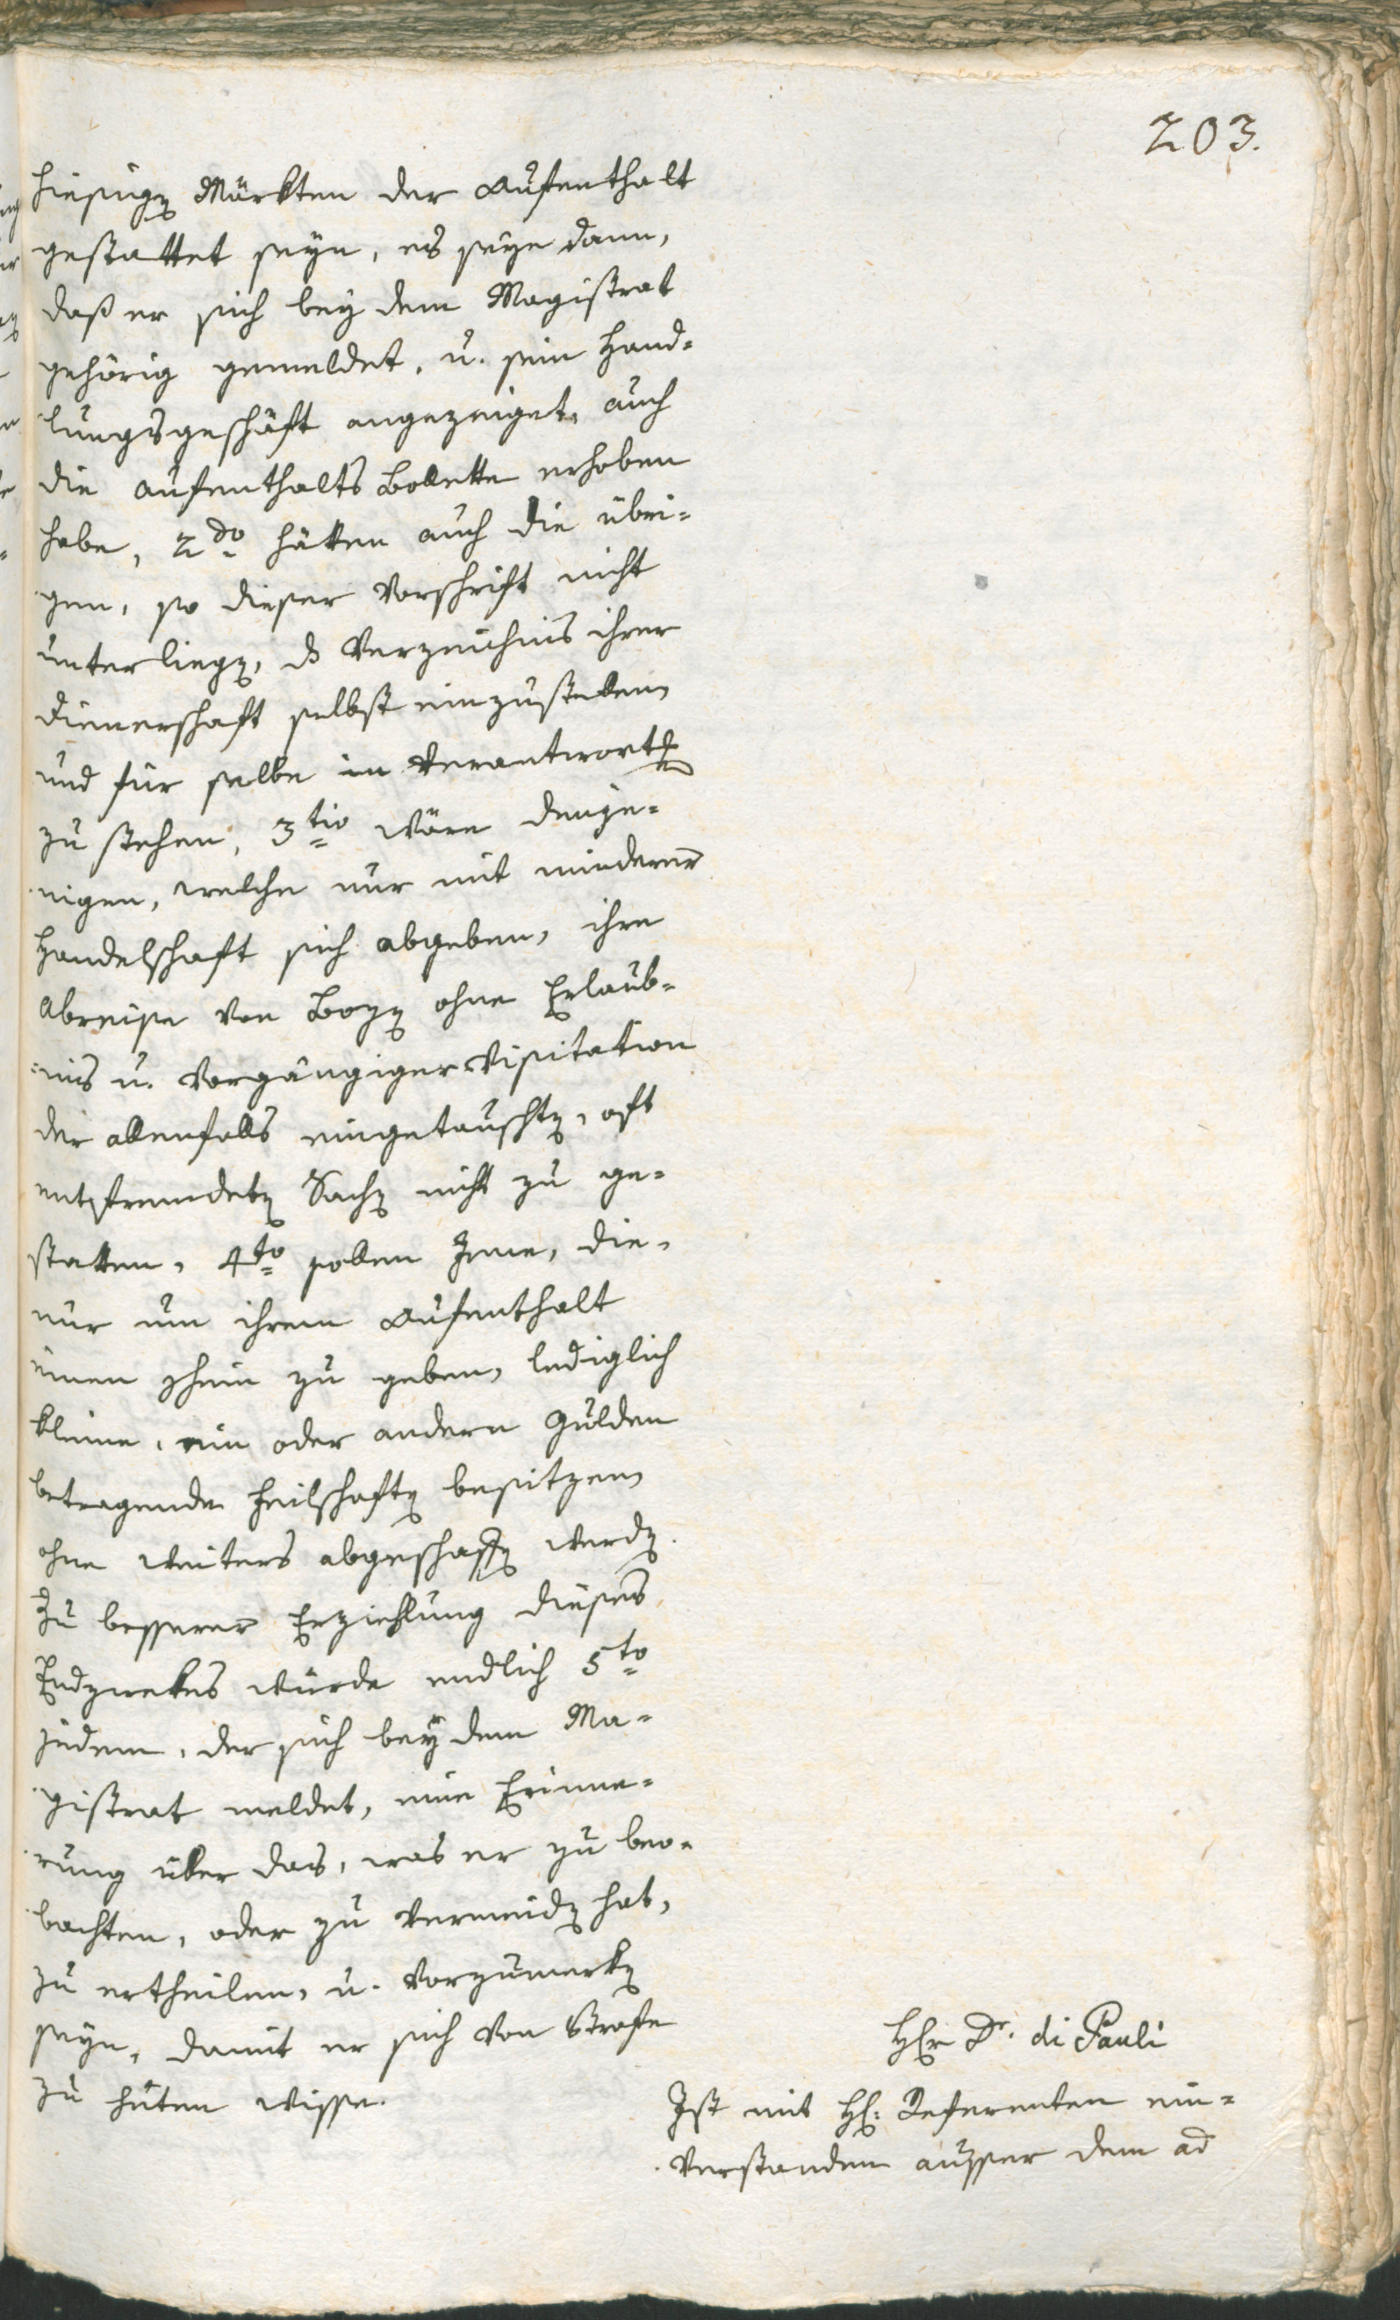 203.
hiesigen Märkten der Aufenthalt
gestattet seyn, es seye dann,
daß er sich bey dem Magistrat
gehörig gemeldet, u. sein Hand-
lungsgeschäft angezeiget, auch
die Aufenthalts Bollette erhoben
habe, 2do hätten auch die übri-
gen, so dieser Vorschrift nicht
unterliegen, Verzeichnis ihrer
Dienerschaft selbst einzustellen,
und für selbe in Verantworten
zu stehen, 3tio wäre denje-
nigen, welche nur mit minderer
Handelschaft sich abgeben, ihre
Abreise von Bozen ohne Erlaub-
nis u. vorgängiger Visitation
der allenfalls eingetauschten, oft
entfremdeten Sachen nicht zu ge-
statten, 4to sollen Jene, die,
nur um ihrem Aufenthalt
einen Schein zu geben, lediglich
kleine, ein oder andern Gulden
betragende Feilschaften besitzen,
ohne weiters abgeschaffen werden.
Zu besserer Erziehlung dieses
Endzwekes würde endlich 5to
jedem, der sich bey dem Ma-
gistrat meldet, eine Erinne-
rung über das, was er zu beo-
bachten, oder zu vermeiden hat,
zu ertheilen, u. vorzumerken
seyn, damit er sich von Strafe
zu hüten wisse.
Herr Dr. di Pauli
Ist mit H: Referenten ein-
verstanden ausser dem ad